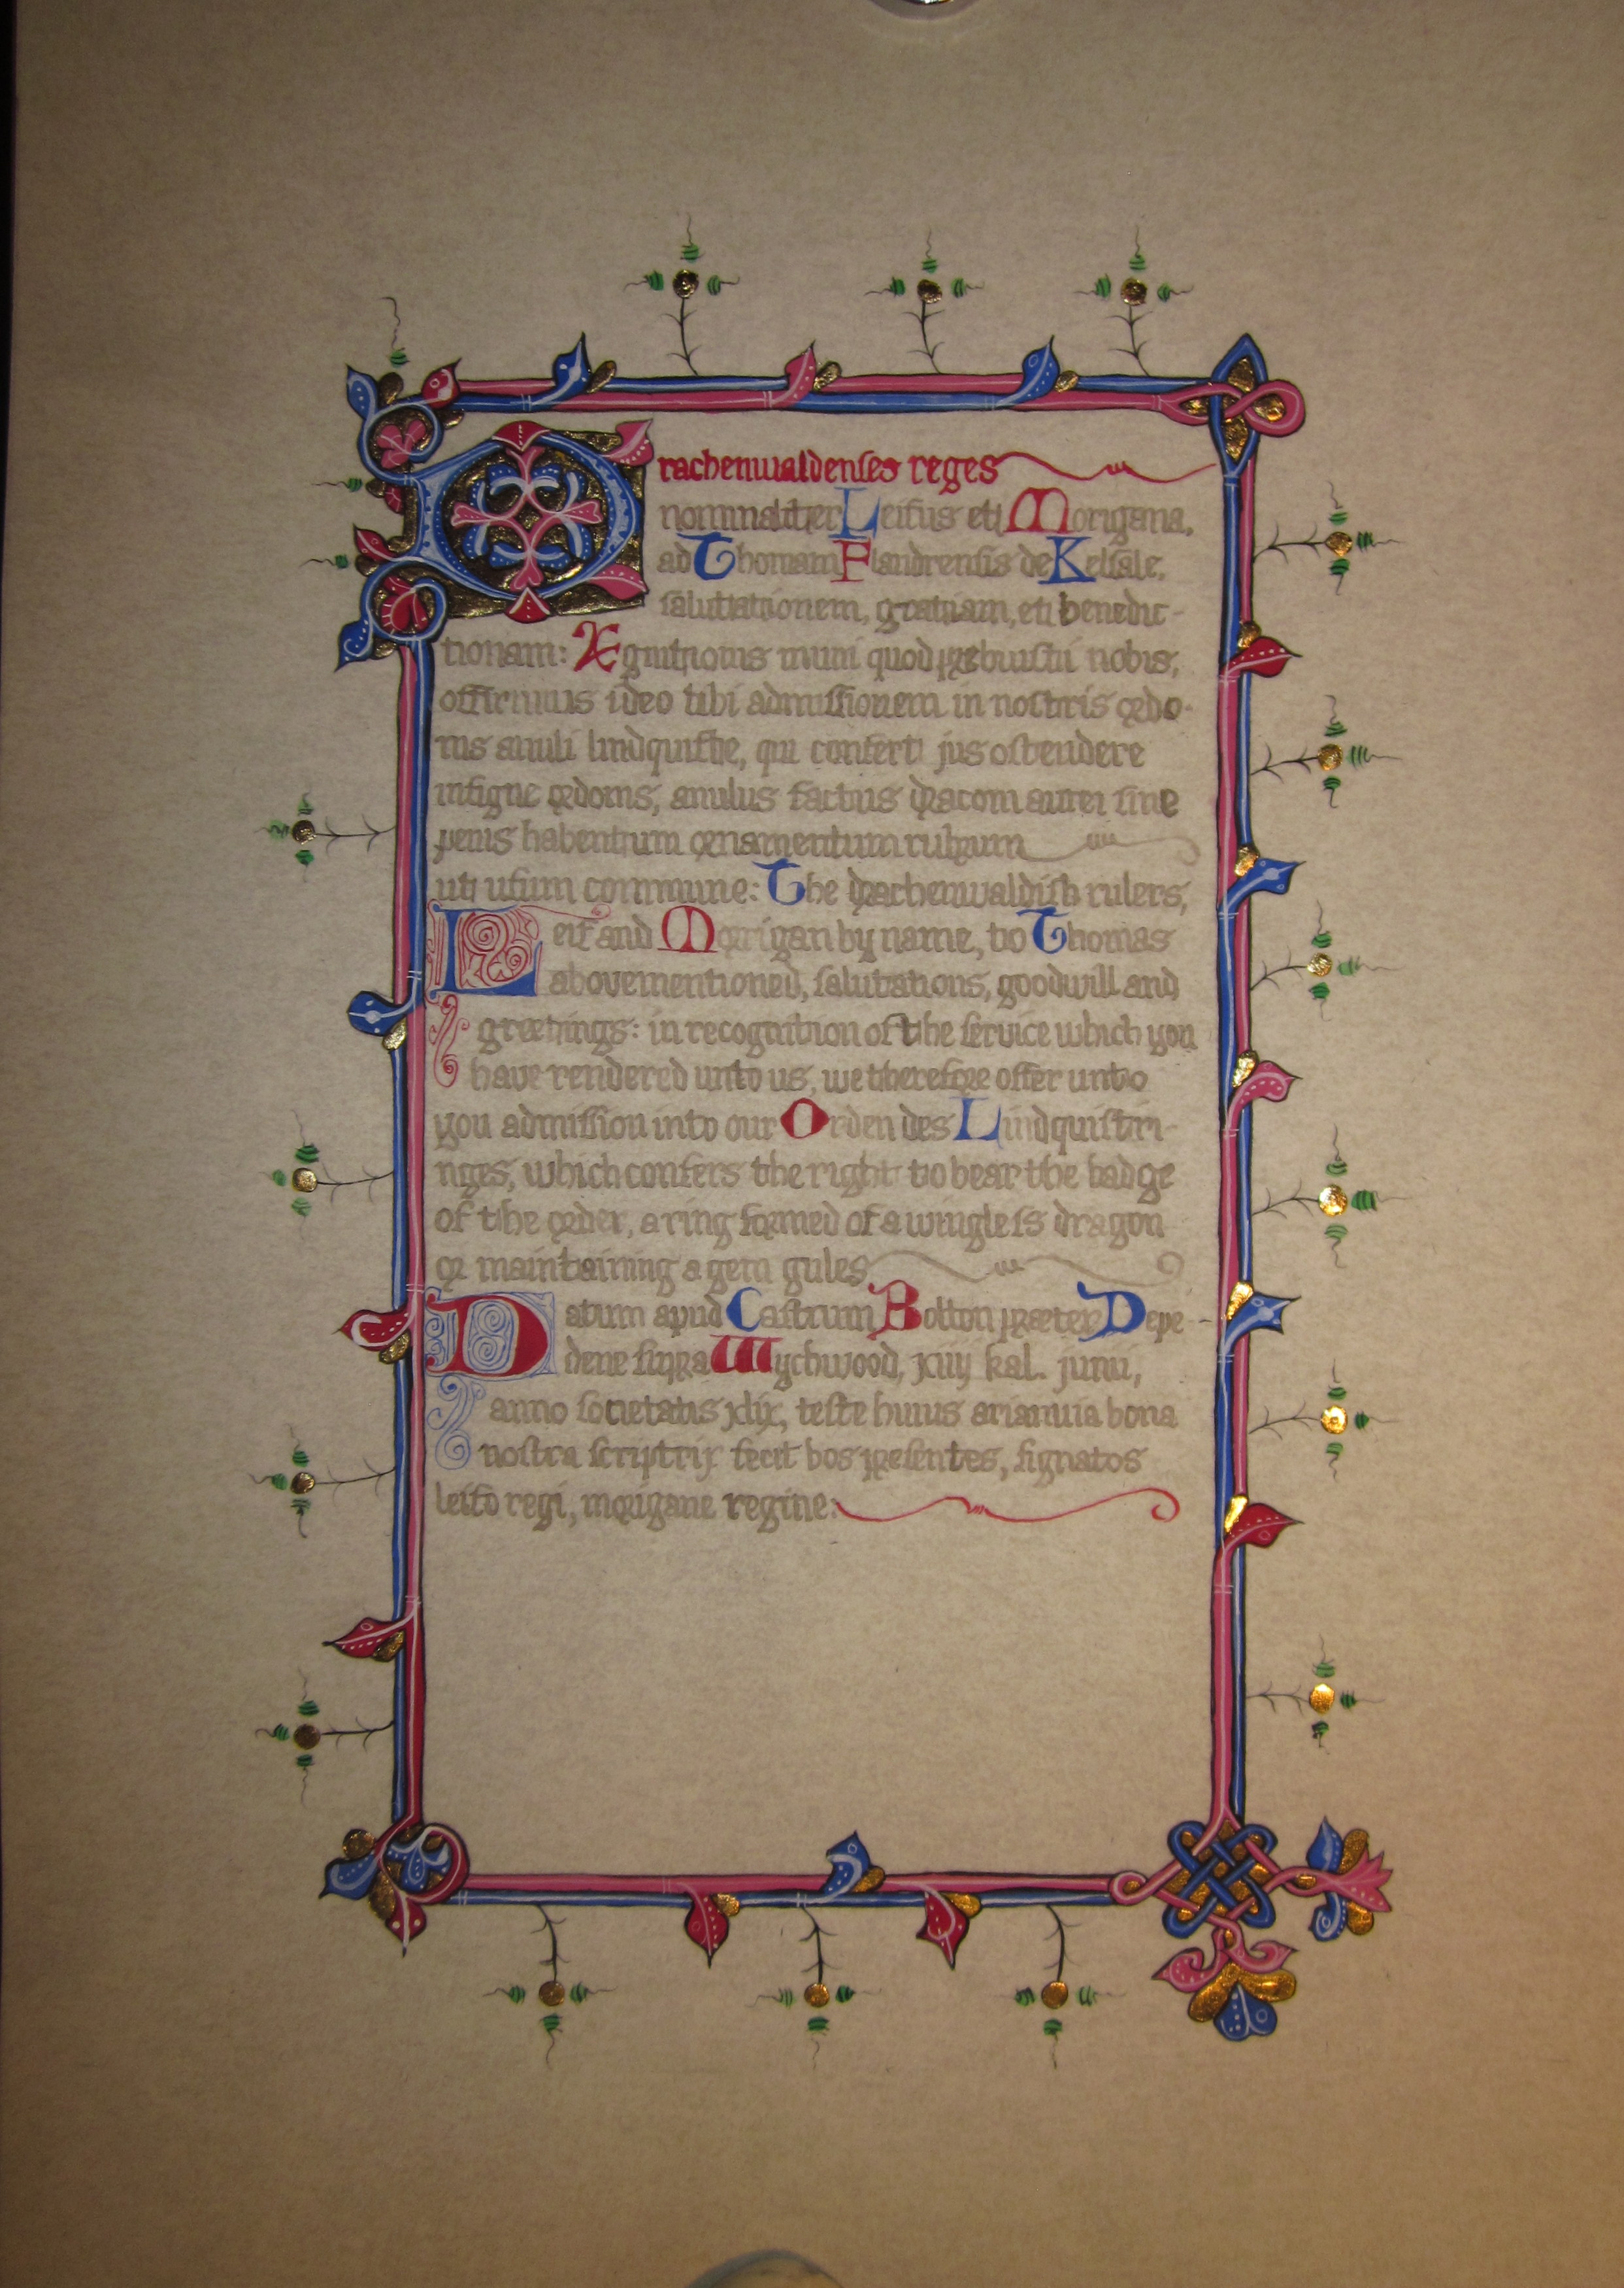 Drachenwaldenses reges
nominaliter Leifus et Morigana,
ad Thomam Flandrensis de Kelsale,
salutationem, gratiam, et benedic-
tionam: Agnitionis muni quod prebuisti nobis,
offirmus ideo tibi admissionem in nostris ordo-
nis anuli lindquiste, qui confert jus ostendere
insigne ordonis, anulus factus draconi aurei sine
penis habentum ornamentum rubrum
ut usum commune: The drachenwaldish rulers,
Leif and Morrigan by name, to Thomas
abovementioned, salutations, goodwill and
greetings: in recognition of the service which you
have rendered unto us, we therefore offer unto
you admission into our Orden des Lindquistri-
nges, which confers the right to bear the badge
of the order, a ring formed of a wingless dragon
or maintaining a gem gules
Datum apud Castrum Bolton preter Depe-
dene supra Wychwood, xiiij kal. junii,
anno societatis xlix, teste huius arianwia bona
nostra scriptrix fecit hos presentes, signatos
leifo regi, morigane regine.